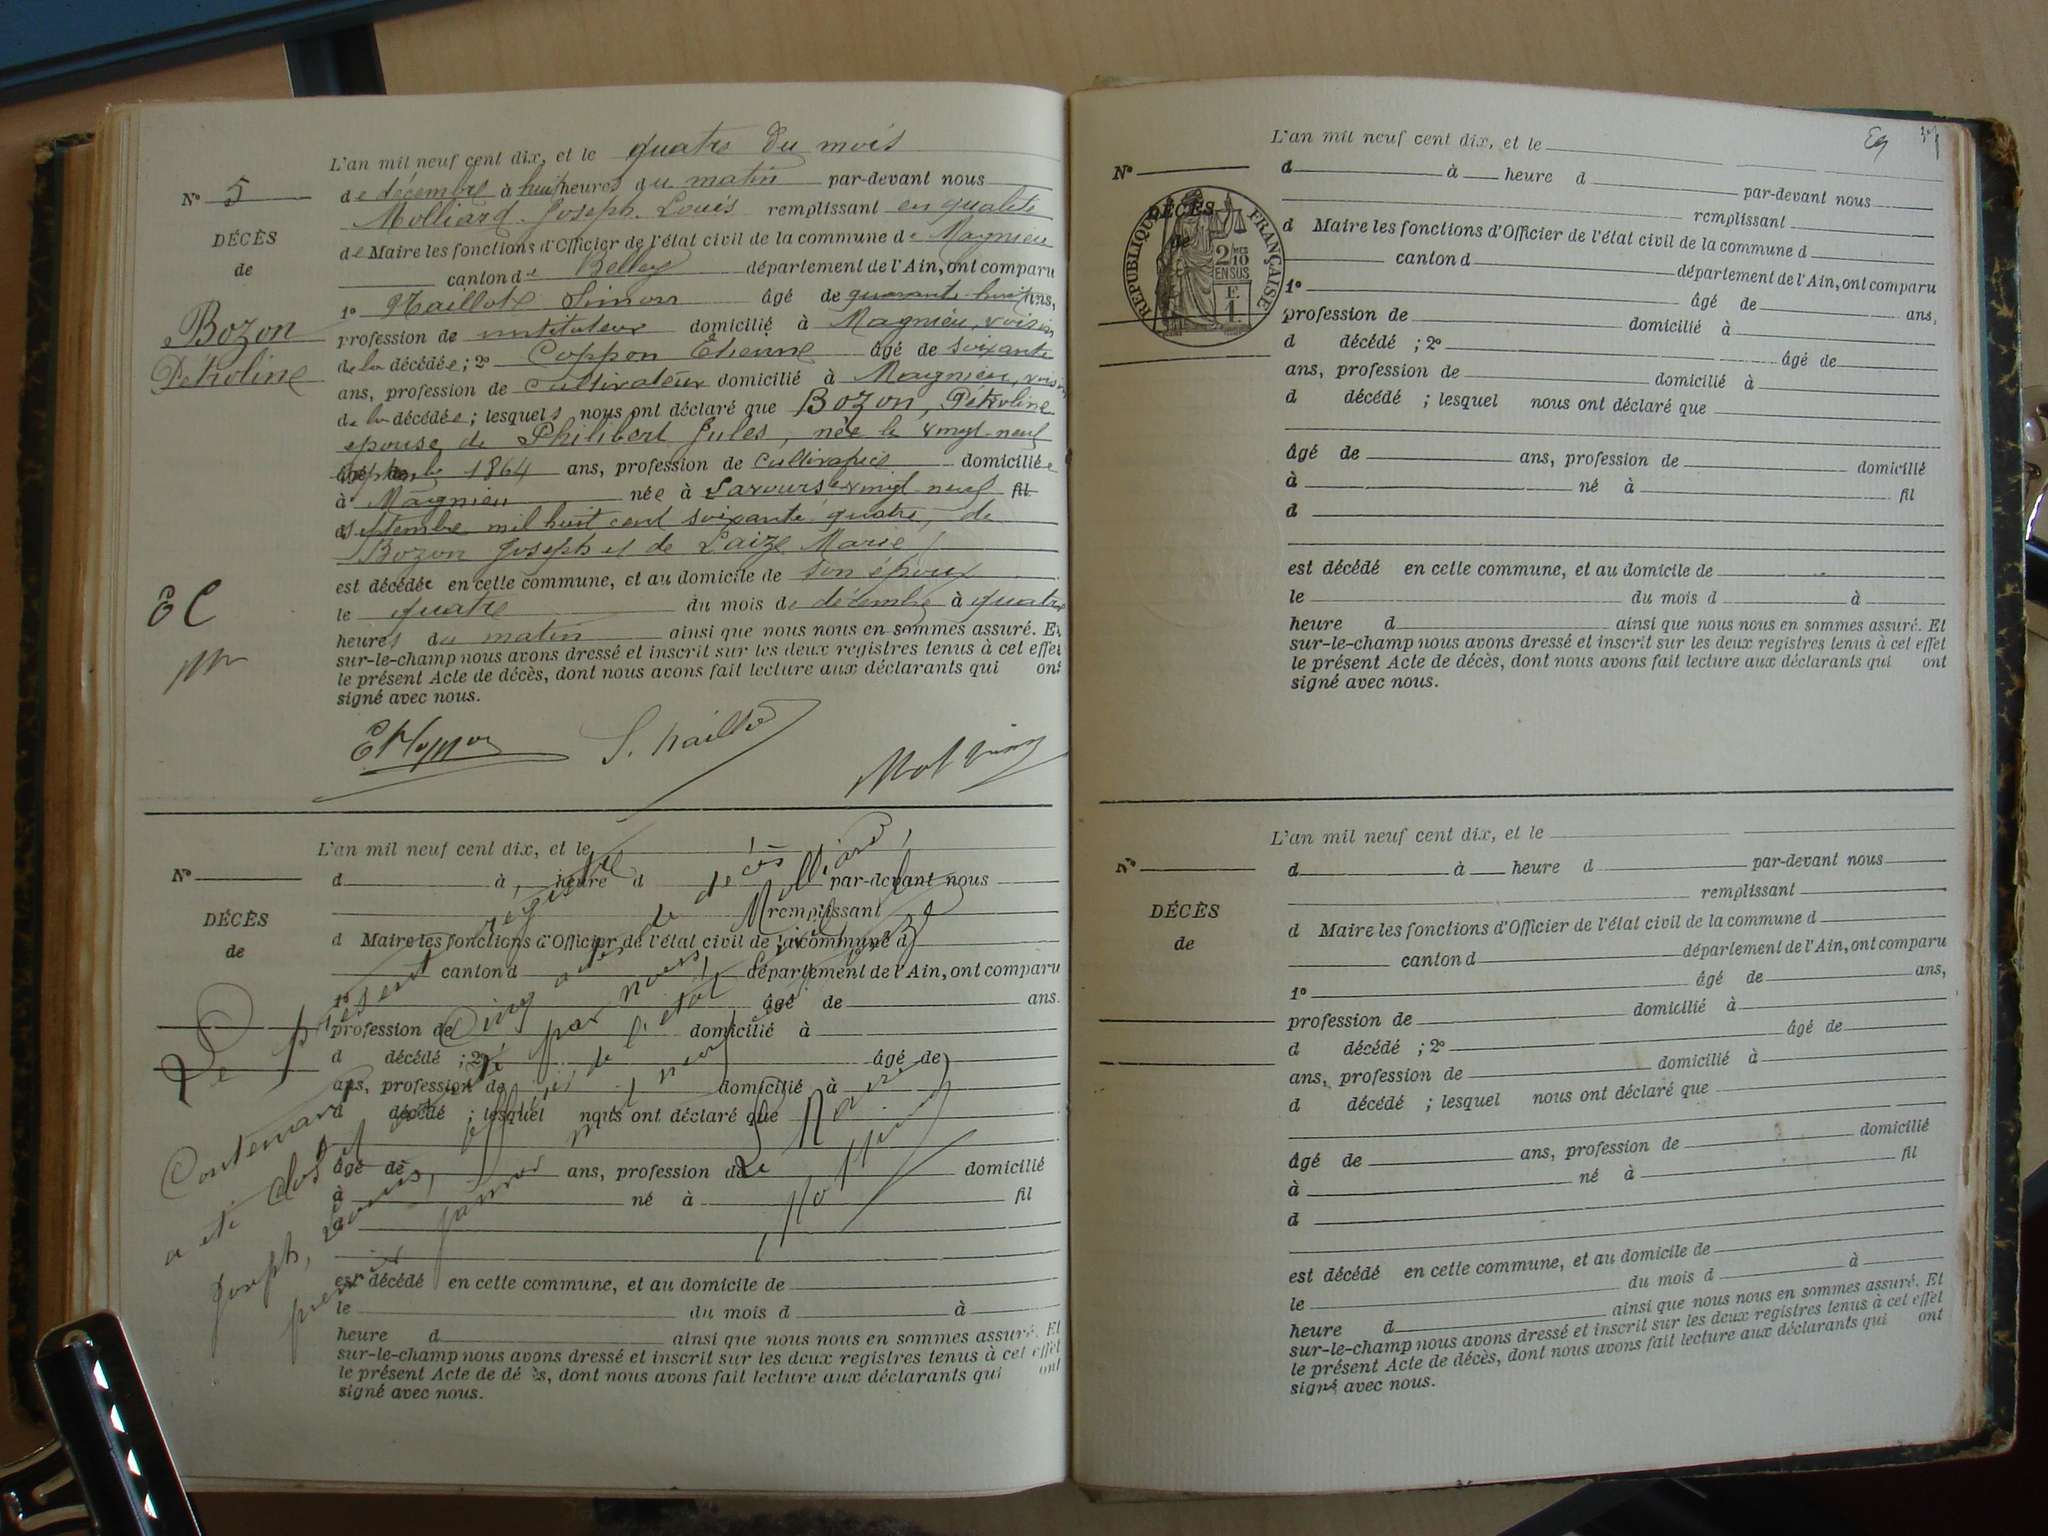 L'an mil neuf cent dix, et le quatre du mois
N° 5
de décembre à huit heures du matin par-devant nous
Molliard Joseph Louis remplissant en qualité
DÉCÈS
de Maire les fonctions d'Officier de l'état civil de la commune de Magnieu
de
canton de Belley département de l'Ain, ont comparu
1° Maillot Simon âgé de quarante huit ans,
Bozon
profession de instituteur domicilié à Magnieu, voisin
de la décédée ; 2° Coppon Etienne âgé de soixante
Pétroline
ans, profession de cultivateur domicilié à Magnieu, voisin
de la décédée ; lesquels nous ont déclaré que Bozon, Pétroline
épouse de Philibert Jules, née le vingt-neuf
septembre 1864 ans, profession de cultivatrice domiciliée
à Magnieu née à Lavours le vingt-neuf fil
septembre mil huit cent soixante quatre, de
Bozon Joseph et de Laize Marie
est décédée en cette commune, et au domicile de son époux
EC
le quatre du mois de décembre à quatre
heures du matin ainsi que nous nous en sommes assuré. Et
sur-le-champ nous avons dressé et inscrit sur les deux registres tenus à cet effet
le présent Acte de décès, dont nous avons fait lecture aux déclarants qui ont
signé avec nous.
L'an mil neuf cent dix, et le
N°
d à heure d par-devant nous
remplissant
DÉCÈS
d Maire les fonctions d'Officier de l'état civil de la commune d
de
canton d département de l'Ain, ont comparu
1° âgé de ans.
profession de domicilié à
d décédé ; 2° âgé de
ans, profession de domicilié à
d décédé ; lesquel nous ont déclaré que
âgé de ans, profession de domicilié
à né à fil
d
est décédé en cette commune, et au domicile de
le du mois d à
heure d ainsi que nous nous en sommes assuré. Et
sur-le-champ nous avons dressé et inscrit sur les deux registres tenus à cet effet
le présent Acte de décès, dont nous avons fait lecture aux déclarants qui ont
signé avec nous.
Le présent registre
Contenant cinq actes de décès
a été clos et arrêté par nous, Molliard
Joseph, Louis, officier de l'état civil
premier janvier mil neuf cent onze
Le Maire
L'an mil neuf cent dix, et le
N°
d à heure d par-devant nous
remplissant
DÉCÈS
de
RÉPUBLIQUE FRANÇAISE
2/10 EN SUS
d Maire les fonctions d'Officier de l'état civil de la commune d
canton d département de l'Ain, ont comparu
1° âgé de ans,
profession de domicilié à
d décédé ; 2° âgé de
ans, profession de domicilié à
d décédé ; lesquel nous ont déclaré que
âgé de ans, profession de domicilié
à né à fil
d
est décédé en cette commune, et au domicile de
le du mois d à
heure d ainsi que nous nous en sommes assuré. Et
sur-le-champ nous avons dressé et inscrit sur les deux registres tenus à cet effet
le présent Acte de décès, dont nous avons fait lecture aux déclarants qui ont
signé avec nous.
L'an mil neuf cent dix, et le
N°
d à heure d par-devant nous
remplissant
DÉCÈS
d Maire les fonctions d'Officier de l'état civil de la commune d
de
canton d département de l'Ain, ont comparu
1° âgé de ans,
profession de domicilié à
d décédé ; 2° âgé de
ans, profession de domicilié à
d décédé ; lesquel nous ont déclaré que
âgé de ans, profession de domicilié
à né à fil
d
est décédé en cette commune, et au domicile de
le du mois d à
heure d ainsi que nous nous en sommes assuré. Et
sur-le-champ nous avons dressé et inscrit sur les deux registres tenus à cet effet
le présent Acte de décès, dont nous avons fait lecture aux déclarants qui ont
signé avec nous.